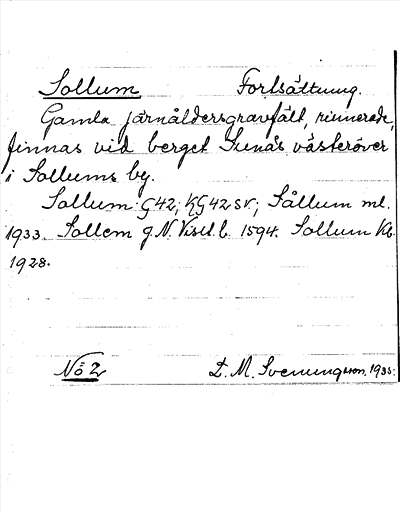 Sollum Fortsättning.
Gamla järnåldersgravfält, rinnerade,
finnas vid berget Sunås västeröver
i Sollums by.
Sollum: G42; KG42 sv.; Sållum ml.
1933. Sollem g. N. Visel. l. 1594. Sollum Kb.
1928.
Nö 2 D. M. Svenungsson. 1933.